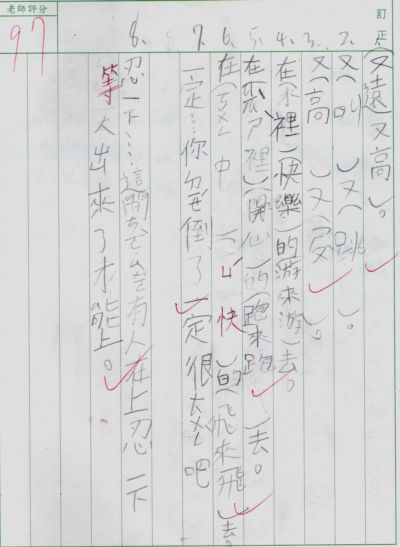 老師評分
97
訂正
(又遠又高)。
2.又(叫)又(跳)。
3.又(高)又(
4.在(水裡)(快樂)的(游來游)去。
5.在(家ㄕ裡)(開心)的(跑來跑)去。
6.在(ㄎㄨㄥ 中)(ㄩˊ快)的(飛來飛)去。
7.一定…你ㄕㄨㄞ倒了一定很ㄊㄨㄥˋ吧
8.忍一下…這間ㄘㄜˋㄙㄨㄛˇ有人在上忍一下
等人出來了才能上。